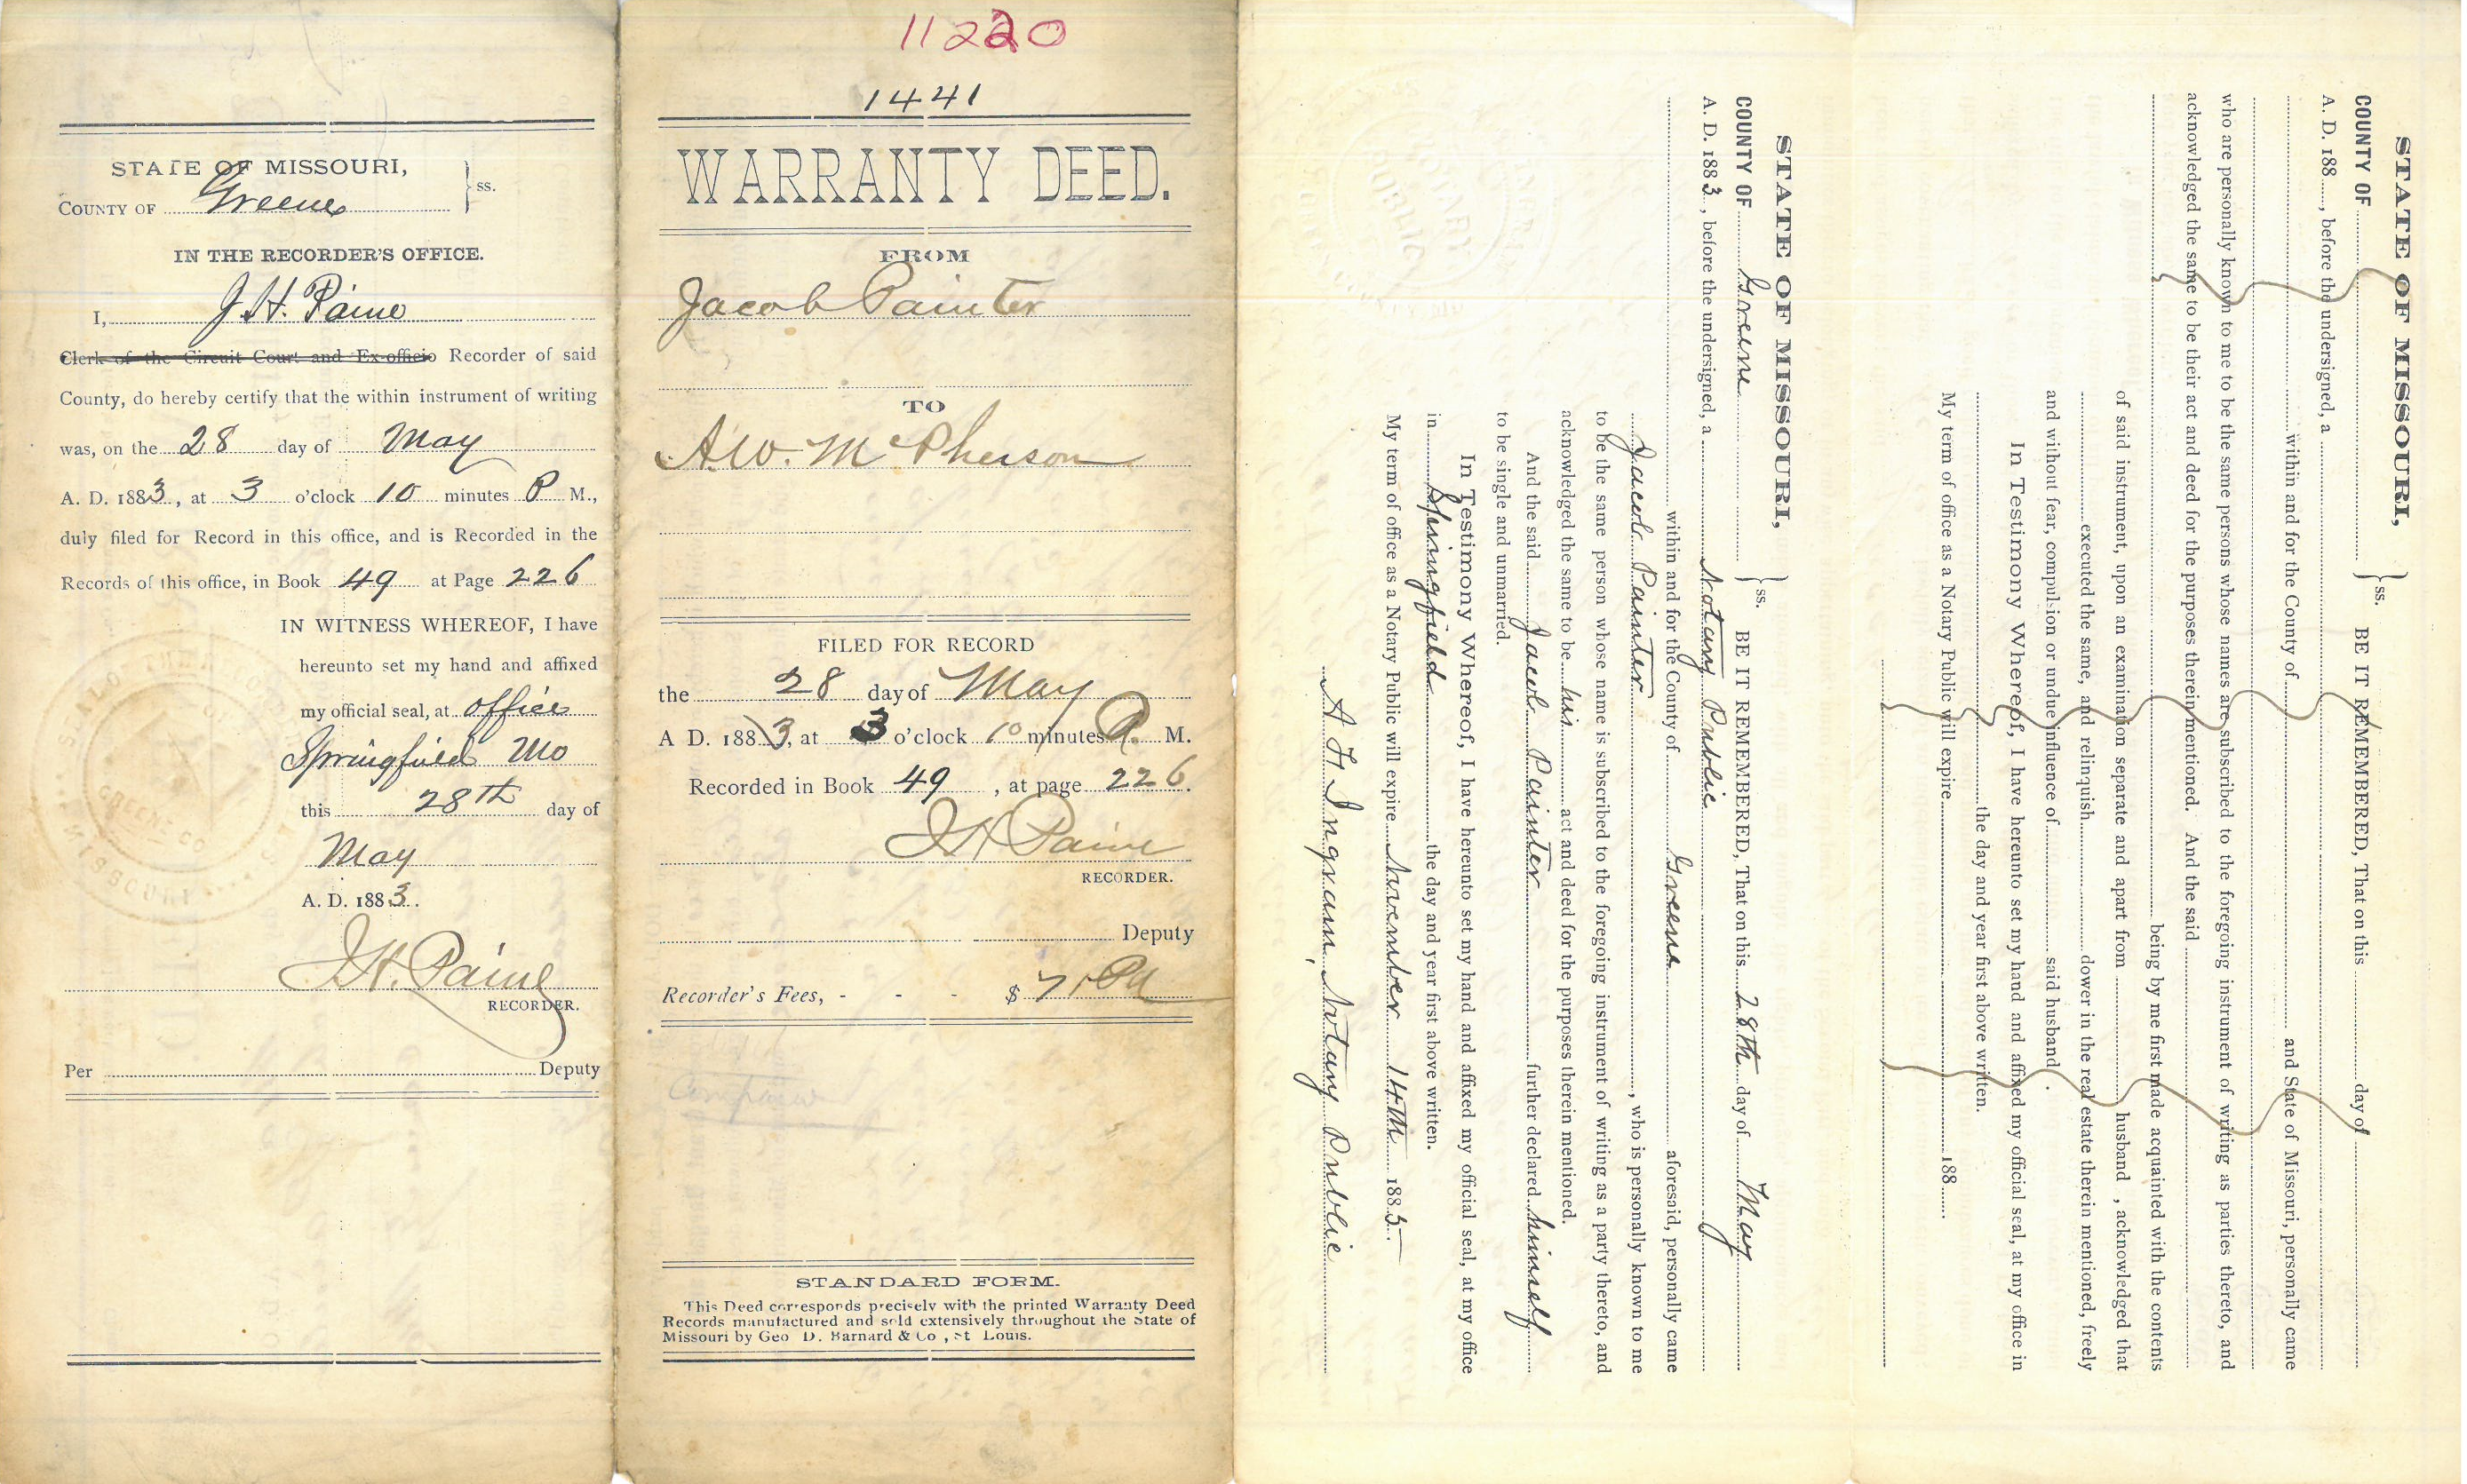 STATE OF MISSOURI,
COUNTY OF Greene } ss.
IN THE RECORDER'S OFFICE.
I, J. H. Paine
Clerk of the Circuit Court and Ex-officio Recorder of said
County, do hereby certify that the within instrument of writing
was, on the 28 day of May
A. D. 1883, at 3 o'clock 10 minutes P M.,
duly filed for Record in this office, and is Recorded in the
Records of this office, in Book 49 at Page 226
IN WITNESS WHEREOF, I have
hereunto set my hand and affixed
my official seal, at office
Springfield Mo
this 28th day of
May
A. D. 1883.
J. H. Paine
RECORDER.
Per Deputy
GREENE CO
MISSOURI
11220
1441
WARRANTY DEED.
FROM
Jacob Painter
TO
A. W. McPherson
FILED FOR RECORD
the 28 day of May
A D. 1883, at 3 o'clock 10 minutes P. M.
Recorded in Book 49, at page 226.
J H Paine
RECORDER.
Deputy
Recorder's Fees, - - - $
STANDARD FORM.
This Deed corresponds precisely with the printed Warranty Deed
Records manufactured and sold extensively throughout the State of
Missouri by Geo D. Barnard & Co , St Louis.
STATE OF MISSOURI,
COUNTY OF Greene } ss. BE IT REMEMBERED, That on this 28th day of May
A. D. 1883, before the undersigned, a Notary Public
within and for the County of Greene aforesaid, personally came
Jacob Painter, who is personally known to me
to be the same person whose name is subscribed to the foregoing instrument of writing as a party thereto, and
acknowledged the same to be his act and deed for the purposes therein mentioned.
And the said Jacob Painter further declared himself
to be single and unmarried.
In Testimony Whereof, I have hereunto set my hand and affixed my official seal, at my office
in Springfield the day and year first above written.
My term of office as a Notary Public will expire November 14th 1885
A H Ingram, Notary Public
NOTARY PUBLIC
STATE OF MISSOURI,
COUNTY OF } ss. BE IT REMEMBERED, That on this day of
A. D. 188 , before the undersigned, a
within and for the County of and State of Missouri, personally came
who are personally known to me to be the same persons whose names are subscribed to the foregoing instrument of writing as parties thereto, and
acknowledged the same to be their act and deed for the purposes therein mentioned. And the said
being by me first made acquainted with the contents
of said instrument, upon an examination separate and apart from husband , acknowledged that
executed the same, and relinquish dower in the real estate therein mentioned, freely
and without fear, compulsion or undue influence of said husband .
In Testimony Whereof, I have hereunto set my hand and affixed my official seal, at my office in
the day and year first above written.
My term of office as a Notary Public will expire 188